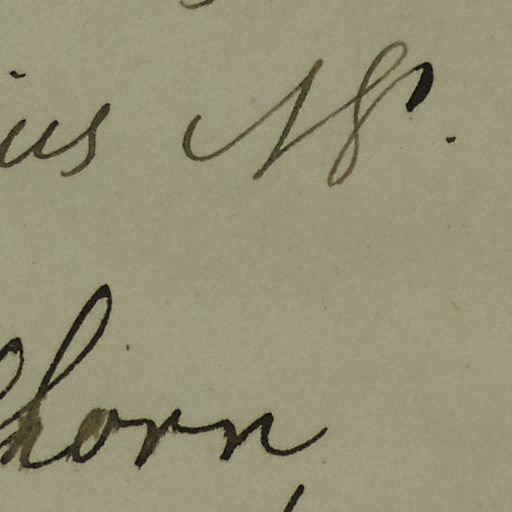 ius N.
horn